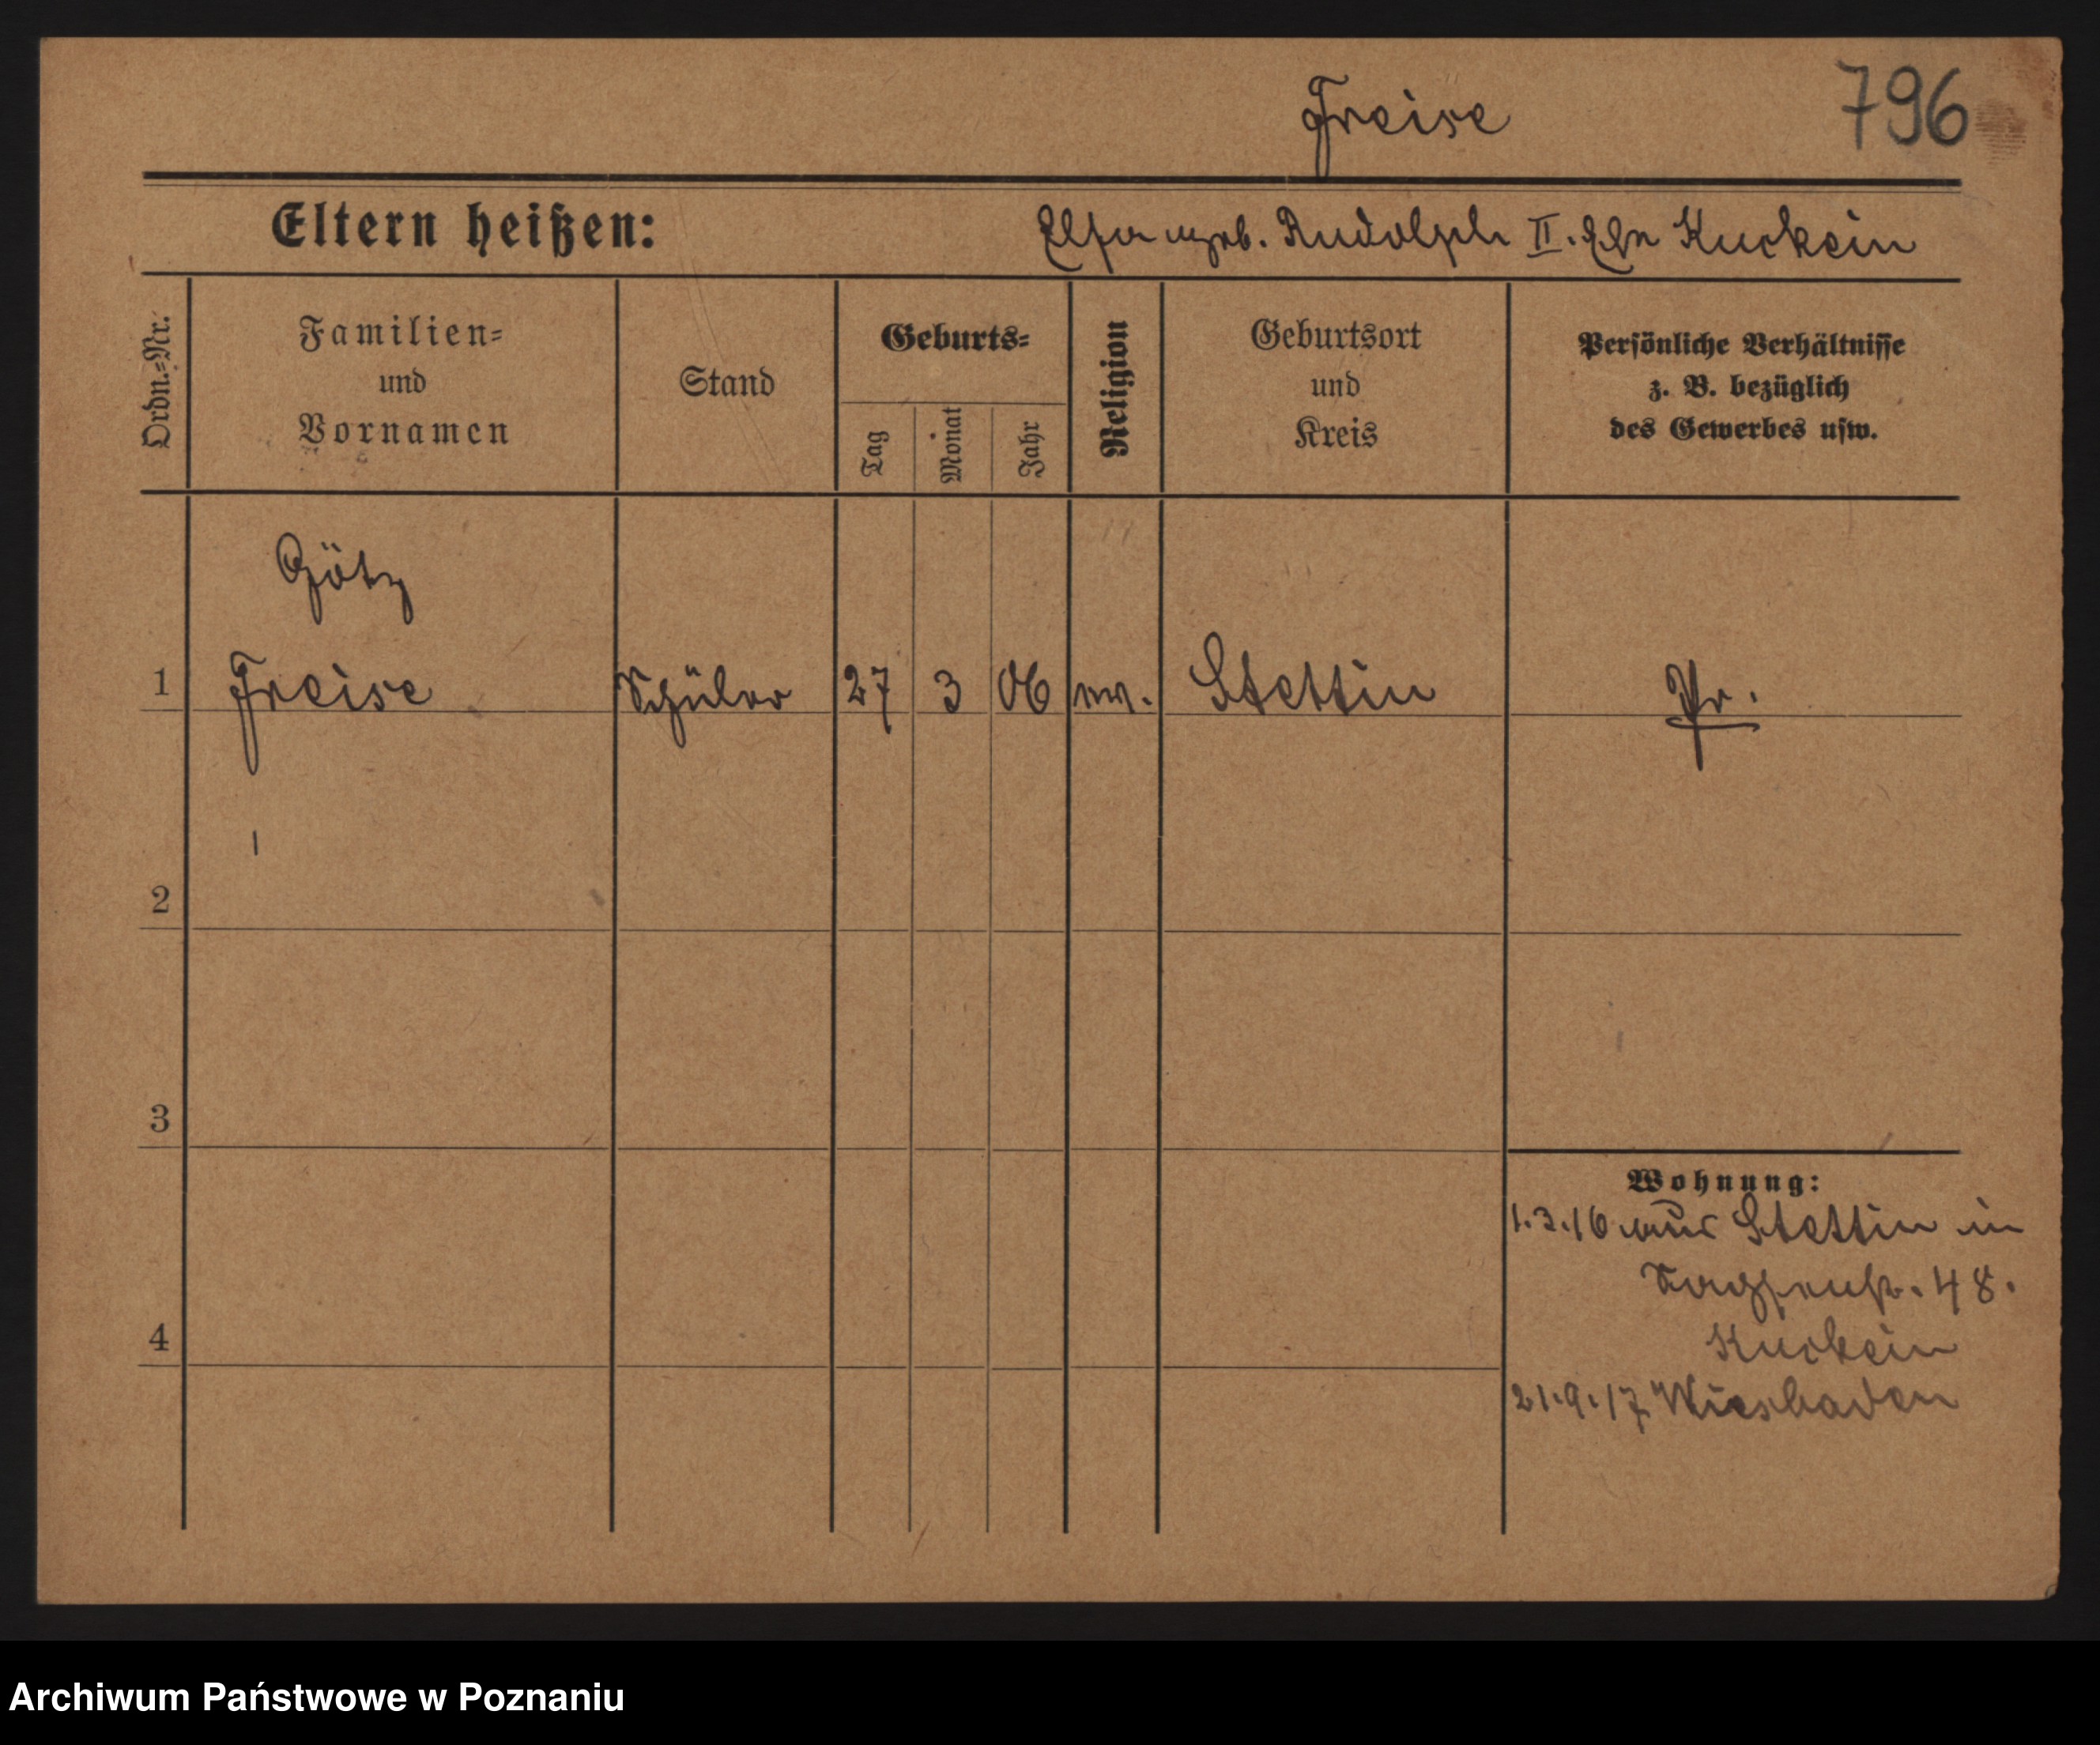 Freise
796
Eltern heißen:
Elsa geb. Rudolph II. Ehe Kuckein
Ordn.=Nr.
Familien=
und
Vornamen
Stand
Geburts=
Tag
Monat
Jahr
Religion
Geburtsort
und
Kreis
Persönliche Verhältnisse
z. B. bezüglich
des Gewerbes usw.
Götz
1 Freise Schüler 27 3 06 ev. Stettin Pr.
2
3
4
Wohnung:
1.3.16 aus Stettin in
48.
Kuckein
21.9.17 Wiesbaden
Archiwum Państwowe w Poznaniu